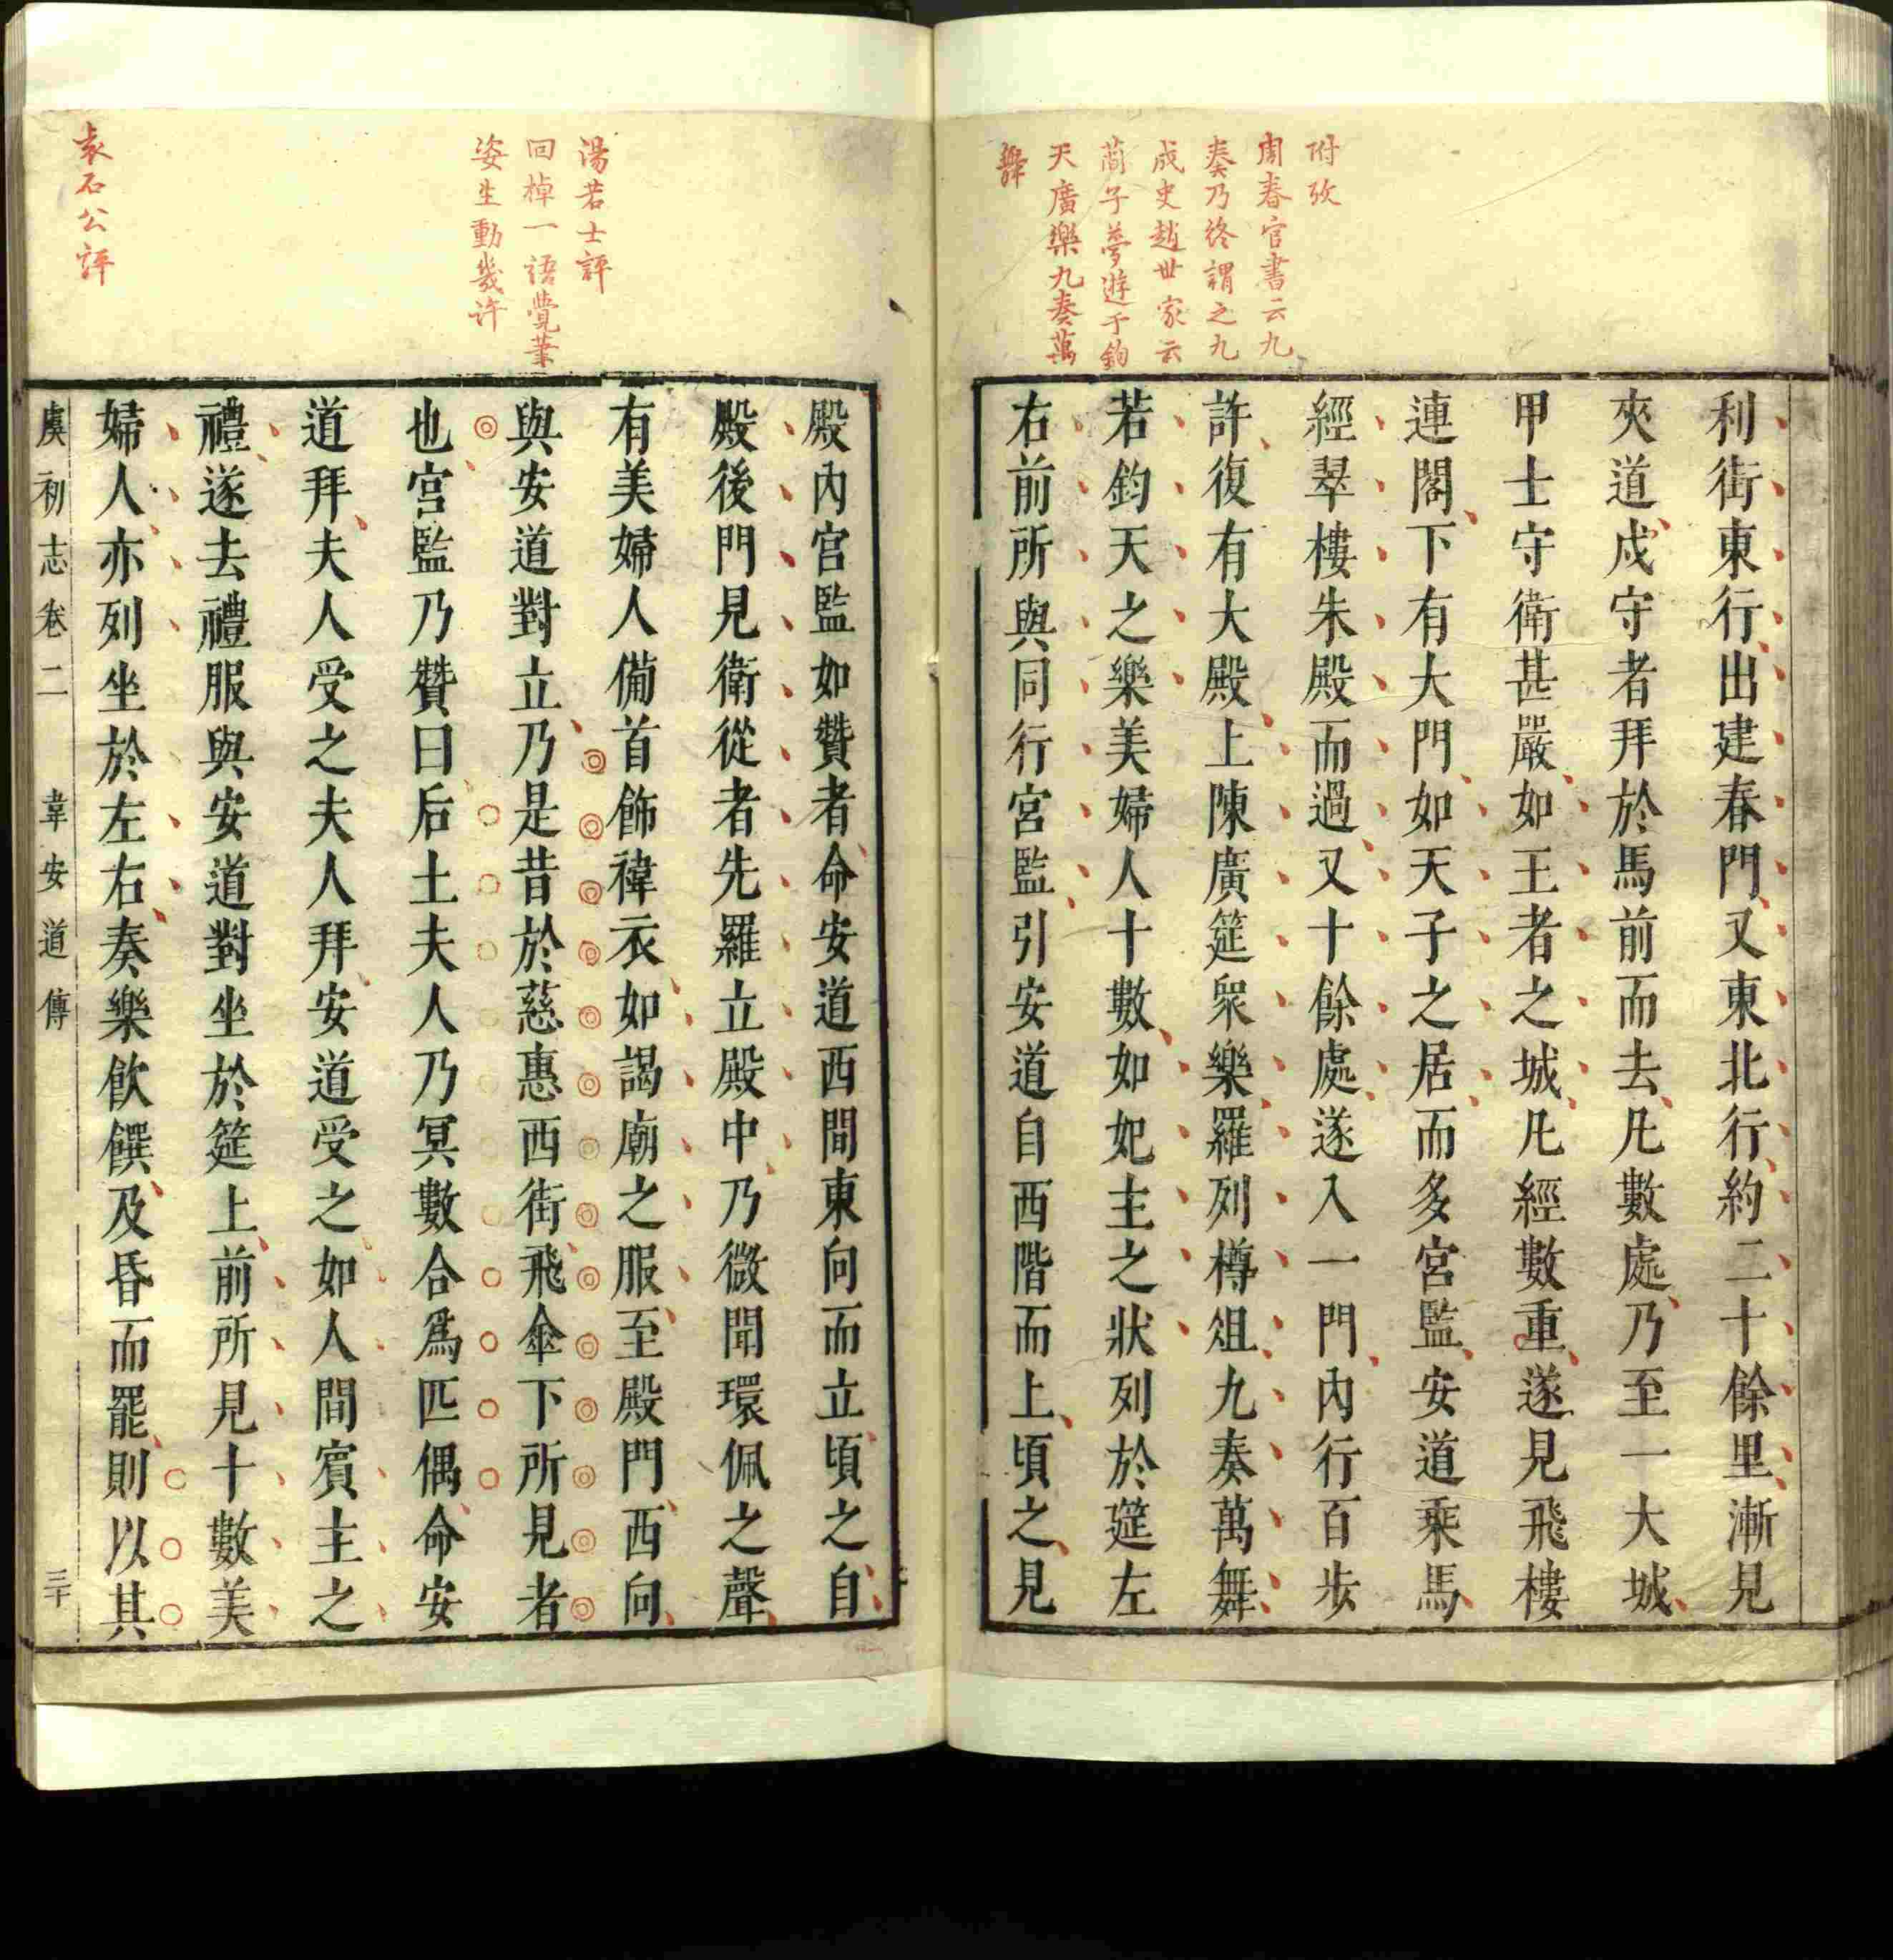 附攷
周春官書云九
奏乃終謂之九
成史趙世家云
簡子夢遊于鈞
天廣樂九奏萬
舞
利街東行出建春門又東北行約二十餘里漸見
夾道戍守者拜於馬前而去凡數處乃至一大城
甲士守衛甚嚴如王者之城凡經數重遂見飛樓
連閣下有大門如天子之居而多宮監安道乘馬
經翠樓朱殿而過又十餘處遂入一門內行百步
許復有大殿上陳廣筵眾樂羅列樽俎九奏萬舞
若鈞天之樂美婦人十數如妃主之狀列於筵左
右前所與同行宮監引安道自西階而上頃之見
湯若士評
回棹一語覺筆
姿生動幾許
袁石公評
殿內宮監如贊者命安道西間東向而立頃之自
殿後門見衛從者先羅立殿中乃微聞環佩之聲
有美婦人備首飾褘衣如謁廟之服至殿門西向
與安道對立乃是昔於慈惠西街飛傘下所見者
也宮監乃贊曰后土夫人乃冥數合爲匹偶命安
道拜夫人受之夫人拜安道受之如人間賓主之
禮遂去禮服與安道對坐於筵上前所見十數美
婦人亦列坐於左右奏樂飲饌及昏而罷則以其
虞初志卷二 韋安道傳 三十